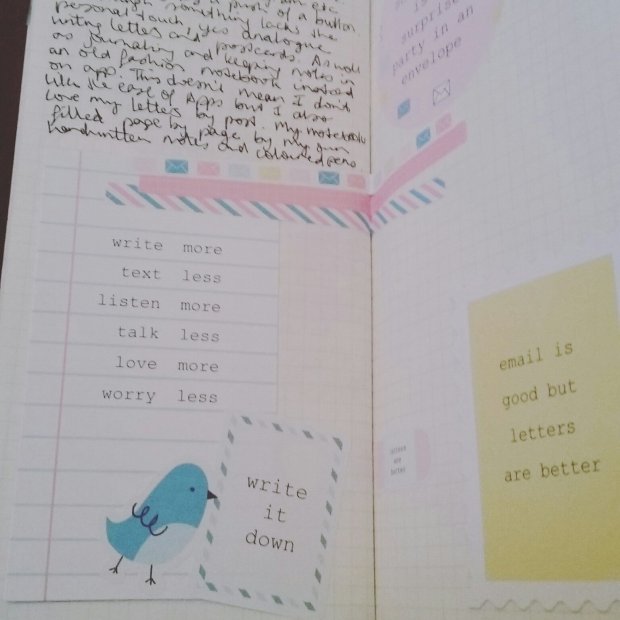 push of a button
something lacks the
personal touch, yes analogue
writing letters and postcards. As well
as journaling and keeping notes in
an old fashion notebook instead
on app. This doesn't mean I don't
like the ease of Apps but I also
love my letters by post. My notebooks
filled page by page by my own
handwritten notes and coloured pens
write more
text less
listen more
talk less
love more
worry less
write
it
down
is
surprise
party in an
envelope
email is
good but
letters
are better
are
better